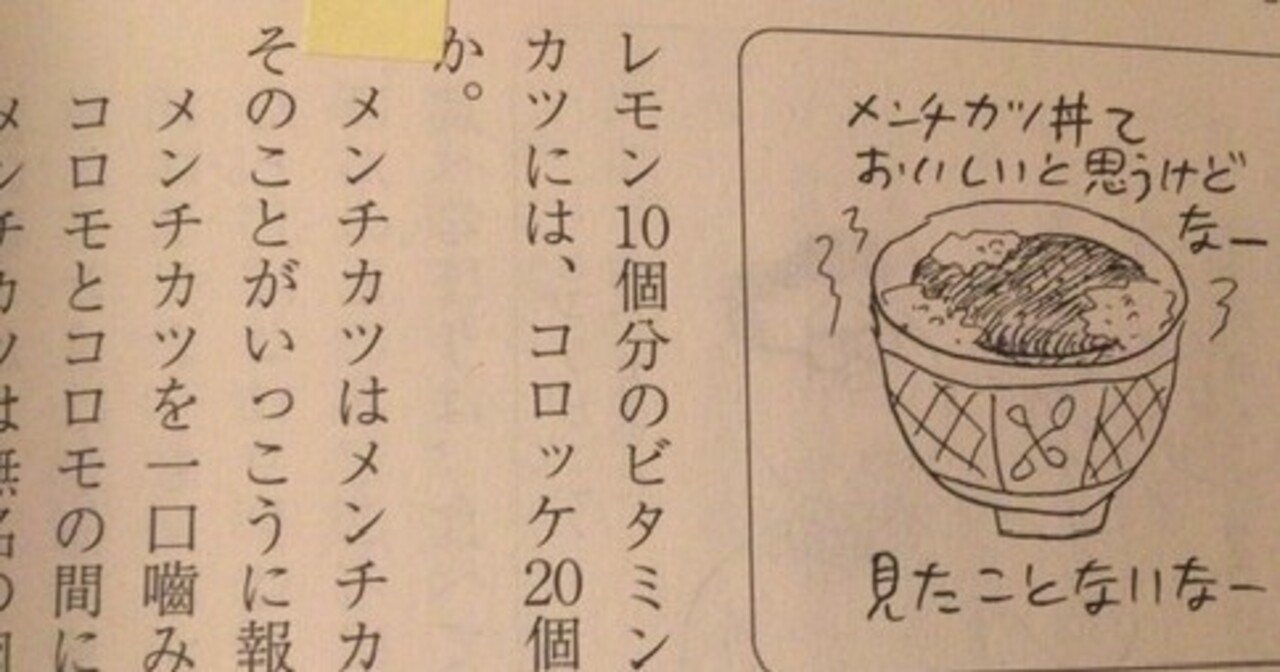 メンチカツ丼て
おいしいと思うけど
なー
見たことないなー
レモン10個分のビタミン
カツには、コロッケ20個
か。
メンチカツはメンチカ
そのことがいっこうに報
メンチカツを一口嚙み
コロモとコロモの間に
メンチカツは無名の